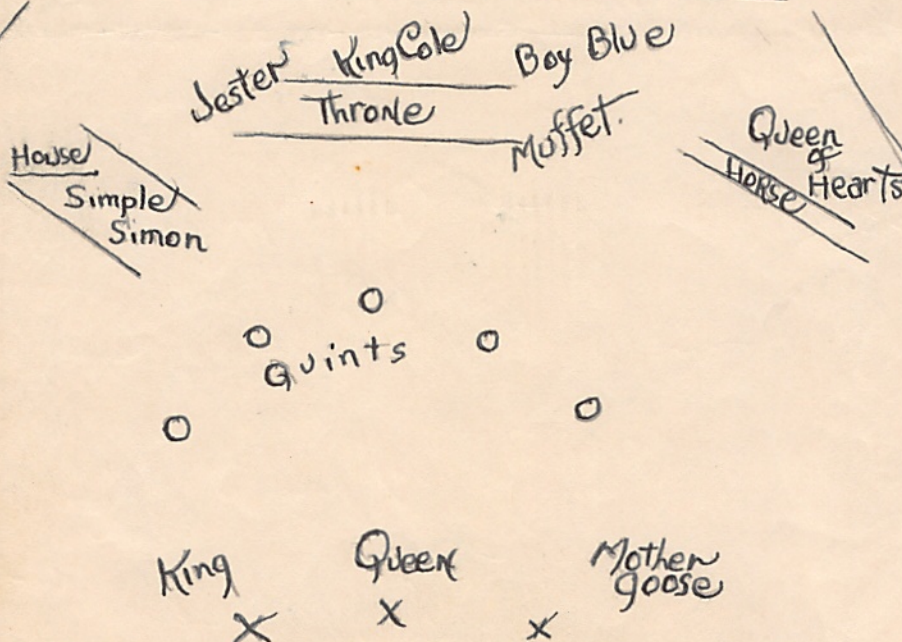 Jester King Cole Boy Blue
Throne
Muffet.
House
Simple
Simon
Queen
of
Hearts
Horse
Quints
King Queen Mother
goose
X X X